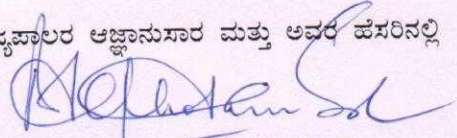 ಜ್ಯಪಾಲರ ಆಜ್ಞಾನುಸಾರ ಮತ್ತು ಅವರ ಹೆಸರಿನಲ್ಲಿ